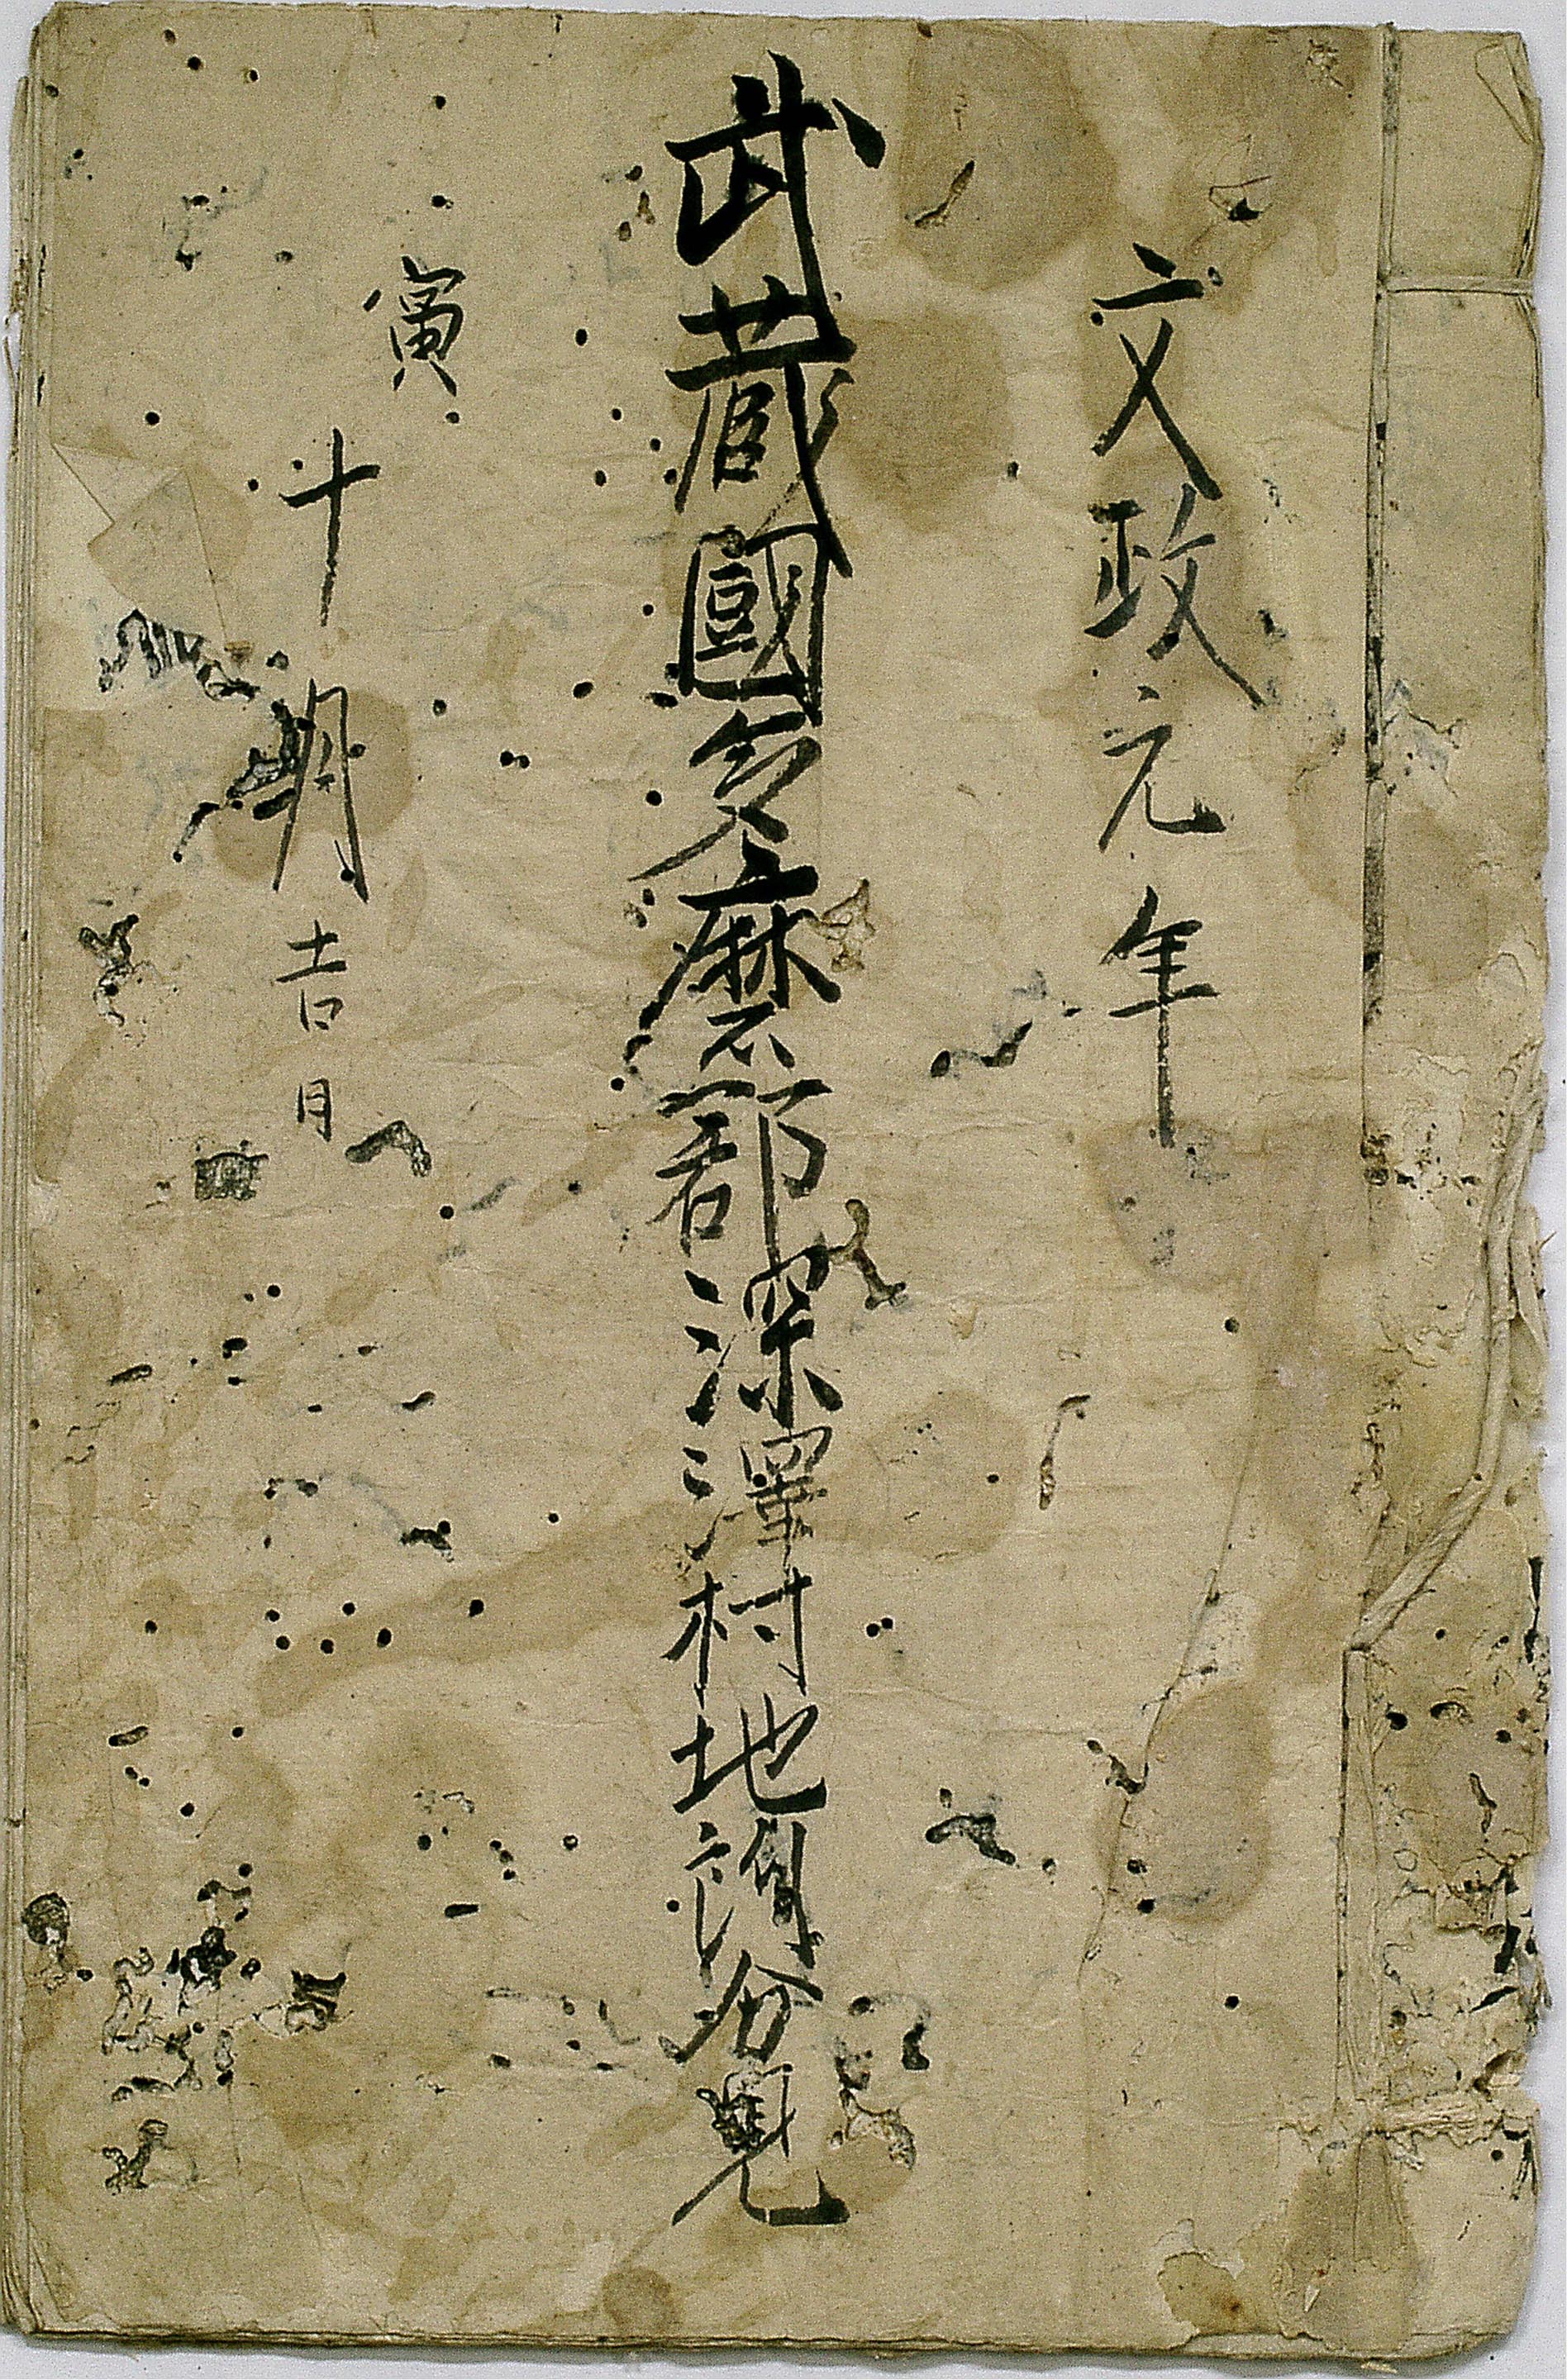 文政元年
武蔵國多磨郡深澤村地分見
寅十月吉日